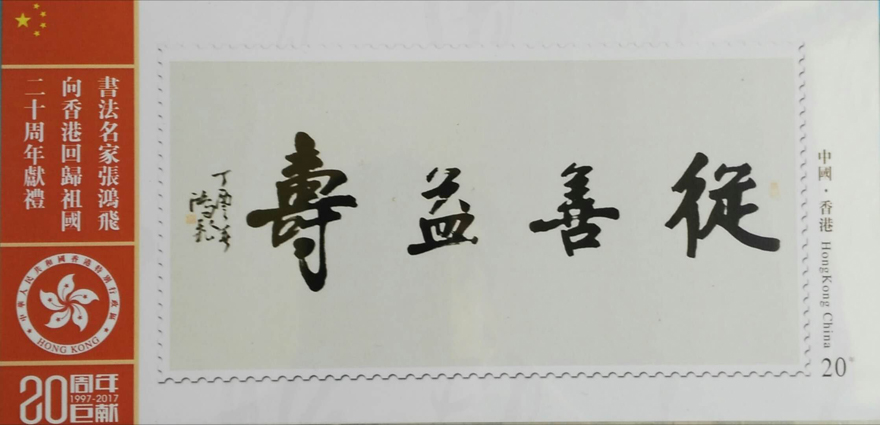 書法名家張鴻飛
向香港回歸祖國
二十周年獻禮
中華人民共和國香港特別行政區
HONG KONG
20周年
1997-2017
巨献
從善益壽
丁酉之春
鴻飛
中國·香港 HongKong China
20